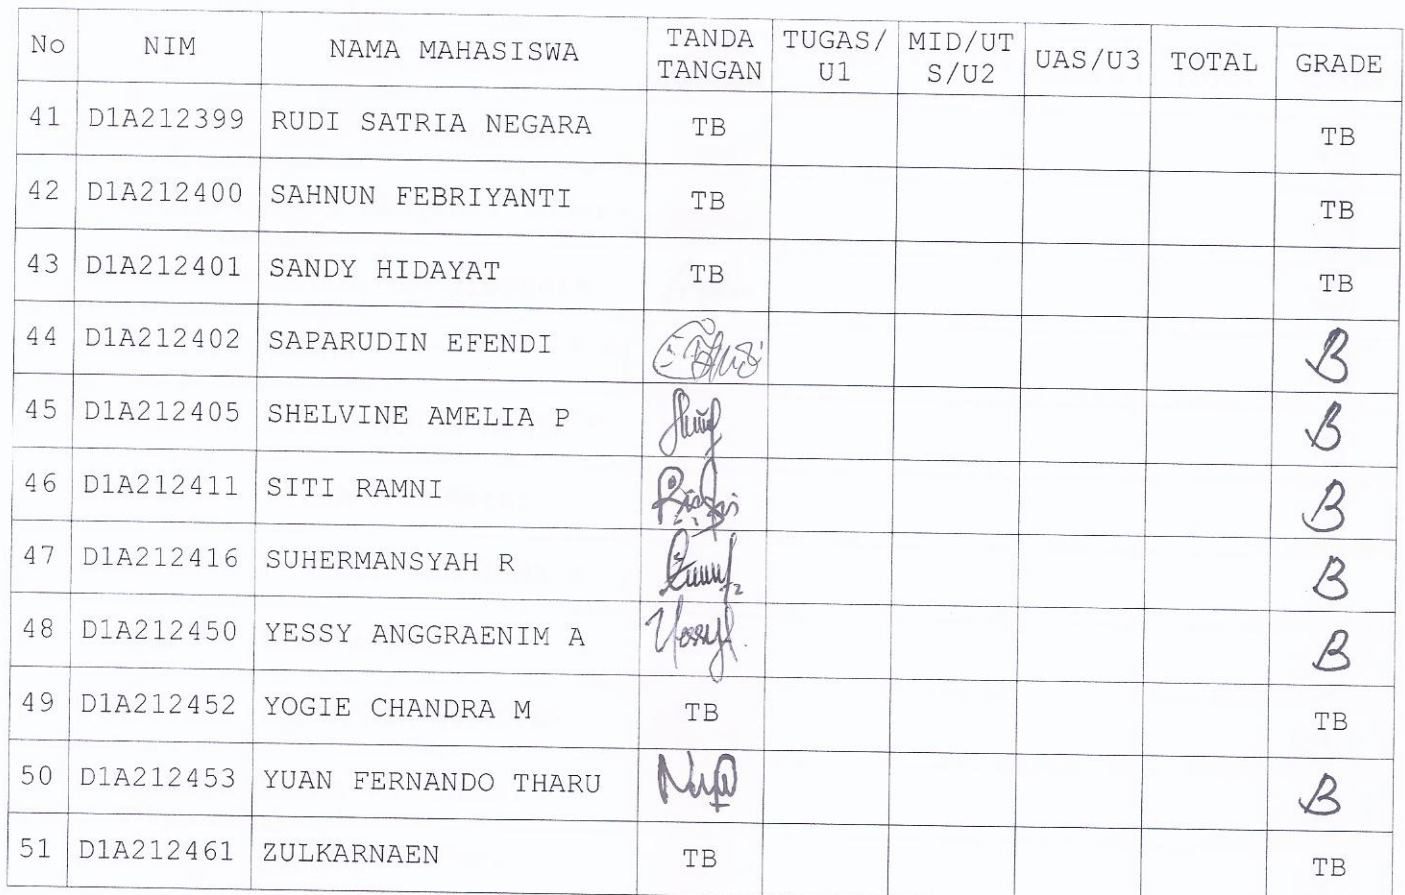 No NIM NAMA MAHASISWA TANDA TANGAN TUGAS/U1 MID/UTS/U2 UAS/U3 TOTAL GRADE
41 D1A212399 RUDI SATRIA NEGARA TB TB
42 D1A212400 SAHNUN FEBRIYANTI TB TB
43 D1A212401 SANDY HIDAYAT TB TB
44 D1A212402 SAPARUDIN EFENDI B
45 D1A212405 SHELVINE AMELIA P B
46 D1A212411 SITI RAMNI B
47 D1A212416 SUHERMANSYAH R B
48 D1A212450 YESSY ANGGRAENIM A Yessy B
49 D1A212452 YOGIE CHANDRA M TB TB
50 D1A212453 YUAN FERNANDO THARU B
51 D1A212461 ZULKARNAEN TB TB